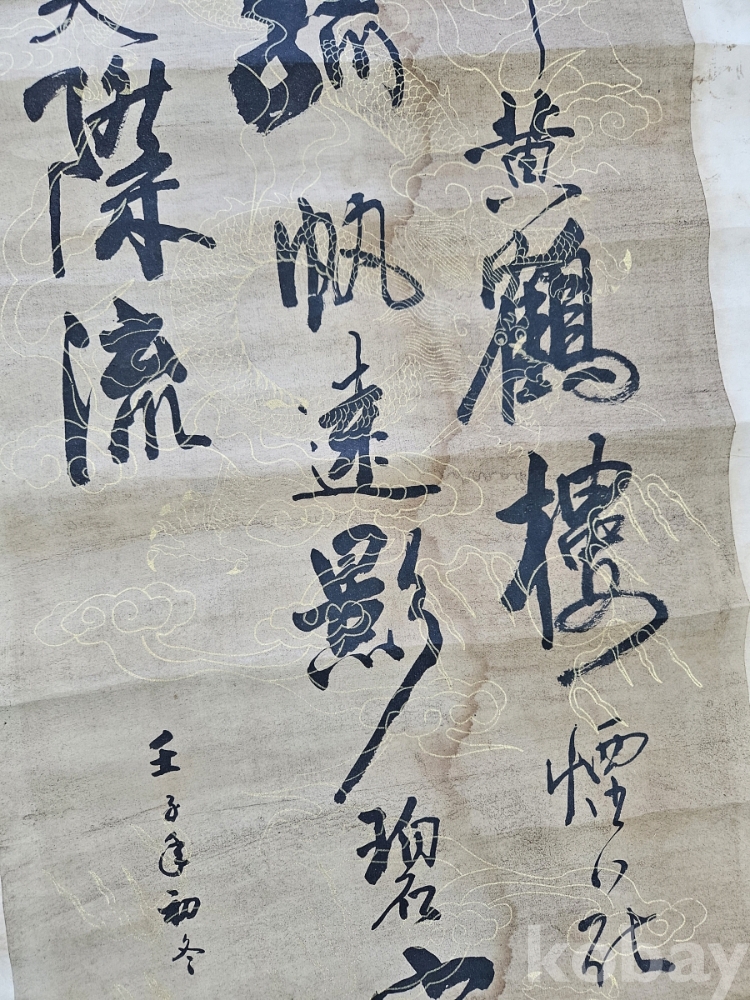 黃鶴樓煙花
孤帆遠影碧
天際流
壬子年初冬
kobay